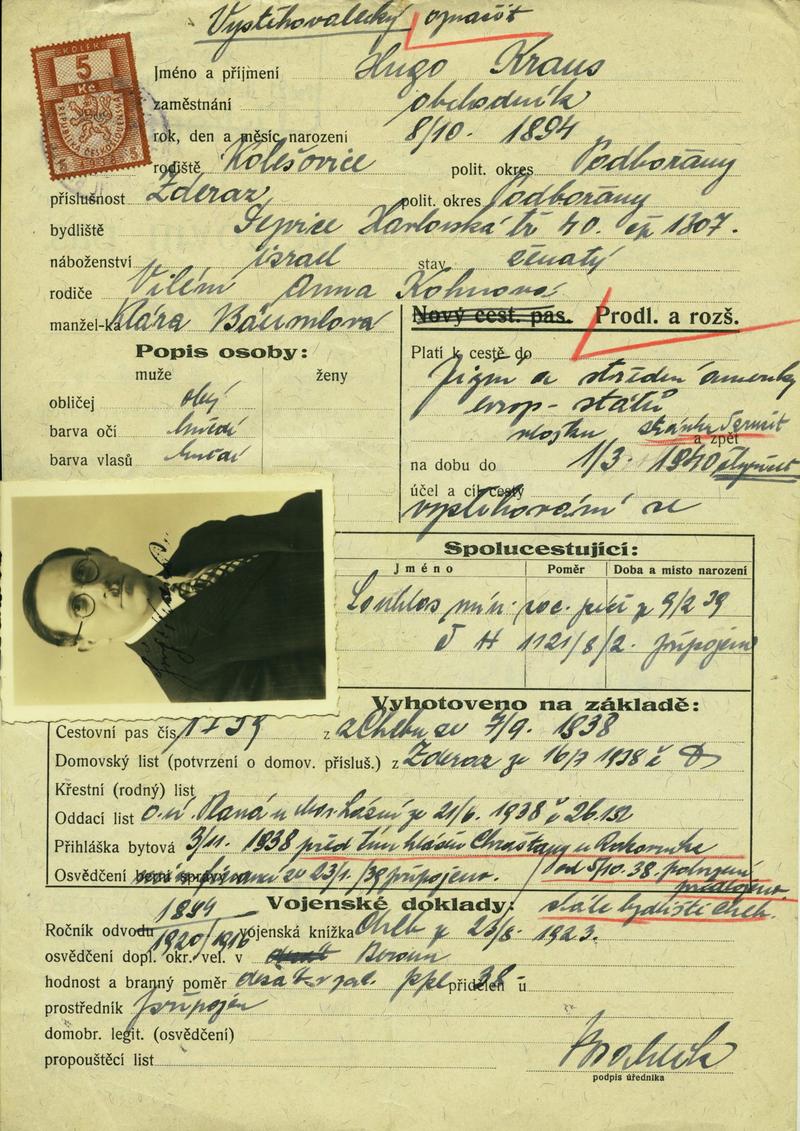 Vystěhovalecký
KOLEK
5
Kč
REPUBLIKA ČESKOSLOVENSKÁ
5 5
Jméno a příjmení Hugo Kraus
zaměstnání obchodník
rok, den a měsíc narození 8/10. 1894
rodiště Kolešovice polit. okres Podbořany
příslušnost Zderaz polit. okres Podbořany
bydliště tř 40. čp 1307.
náboženství israel stav ženatý
rodiče Vilém Anna Kohnová
manžel-ka Klára Bäumlova
Nový cest. pas. Prodl. a rozš.
Popis osoby:
muže ženy
obličej obý
barva očí hnědé
barva vlasů hnědé
Platí k cestě do
Jižní a střední ameriky
evrop- států
a zpět
na dobu do 1/3. 1940
účel a cíl cesty
vystěhování se
Spolucestující:
Jméno Poměr Doba a misto narození
Souhlas min. soc. péče z 9/2 39
J H 1121/8/2. připojen
Vyhotoveno na základě:
Cestovní pas čís. z Chebu ze 7/9. 1938
Domovský list (potvrzení o domov. přísluš.) z Zderaz ze 16/7 1938 č
Křestní (rodný) list
Oddací list o.ú. Planá u Mar. Lázní ze 21/6. 1938 č 26.152
Přihláška bytová 3/11. 1938 před tím hlášen Chrášťany u Rakovníka
Osvědčení berní správy ze 23/1. /39 připojeno. / od 5/10. 38. potvrzení
předloženo.
stálé bydliště Cheb.
Vojenské doklady:
1894
Ročník odvodu 1920/1916 vojenská knížka Cheb z 23/8. 1923.
osvědčení dopl. okr. vel. v Beroun
hodnost a branný poměr v zál. přidělen u
prostředník připojen
domobr. legit. (osvědčení)
propouštěcí list
podpis úředníka